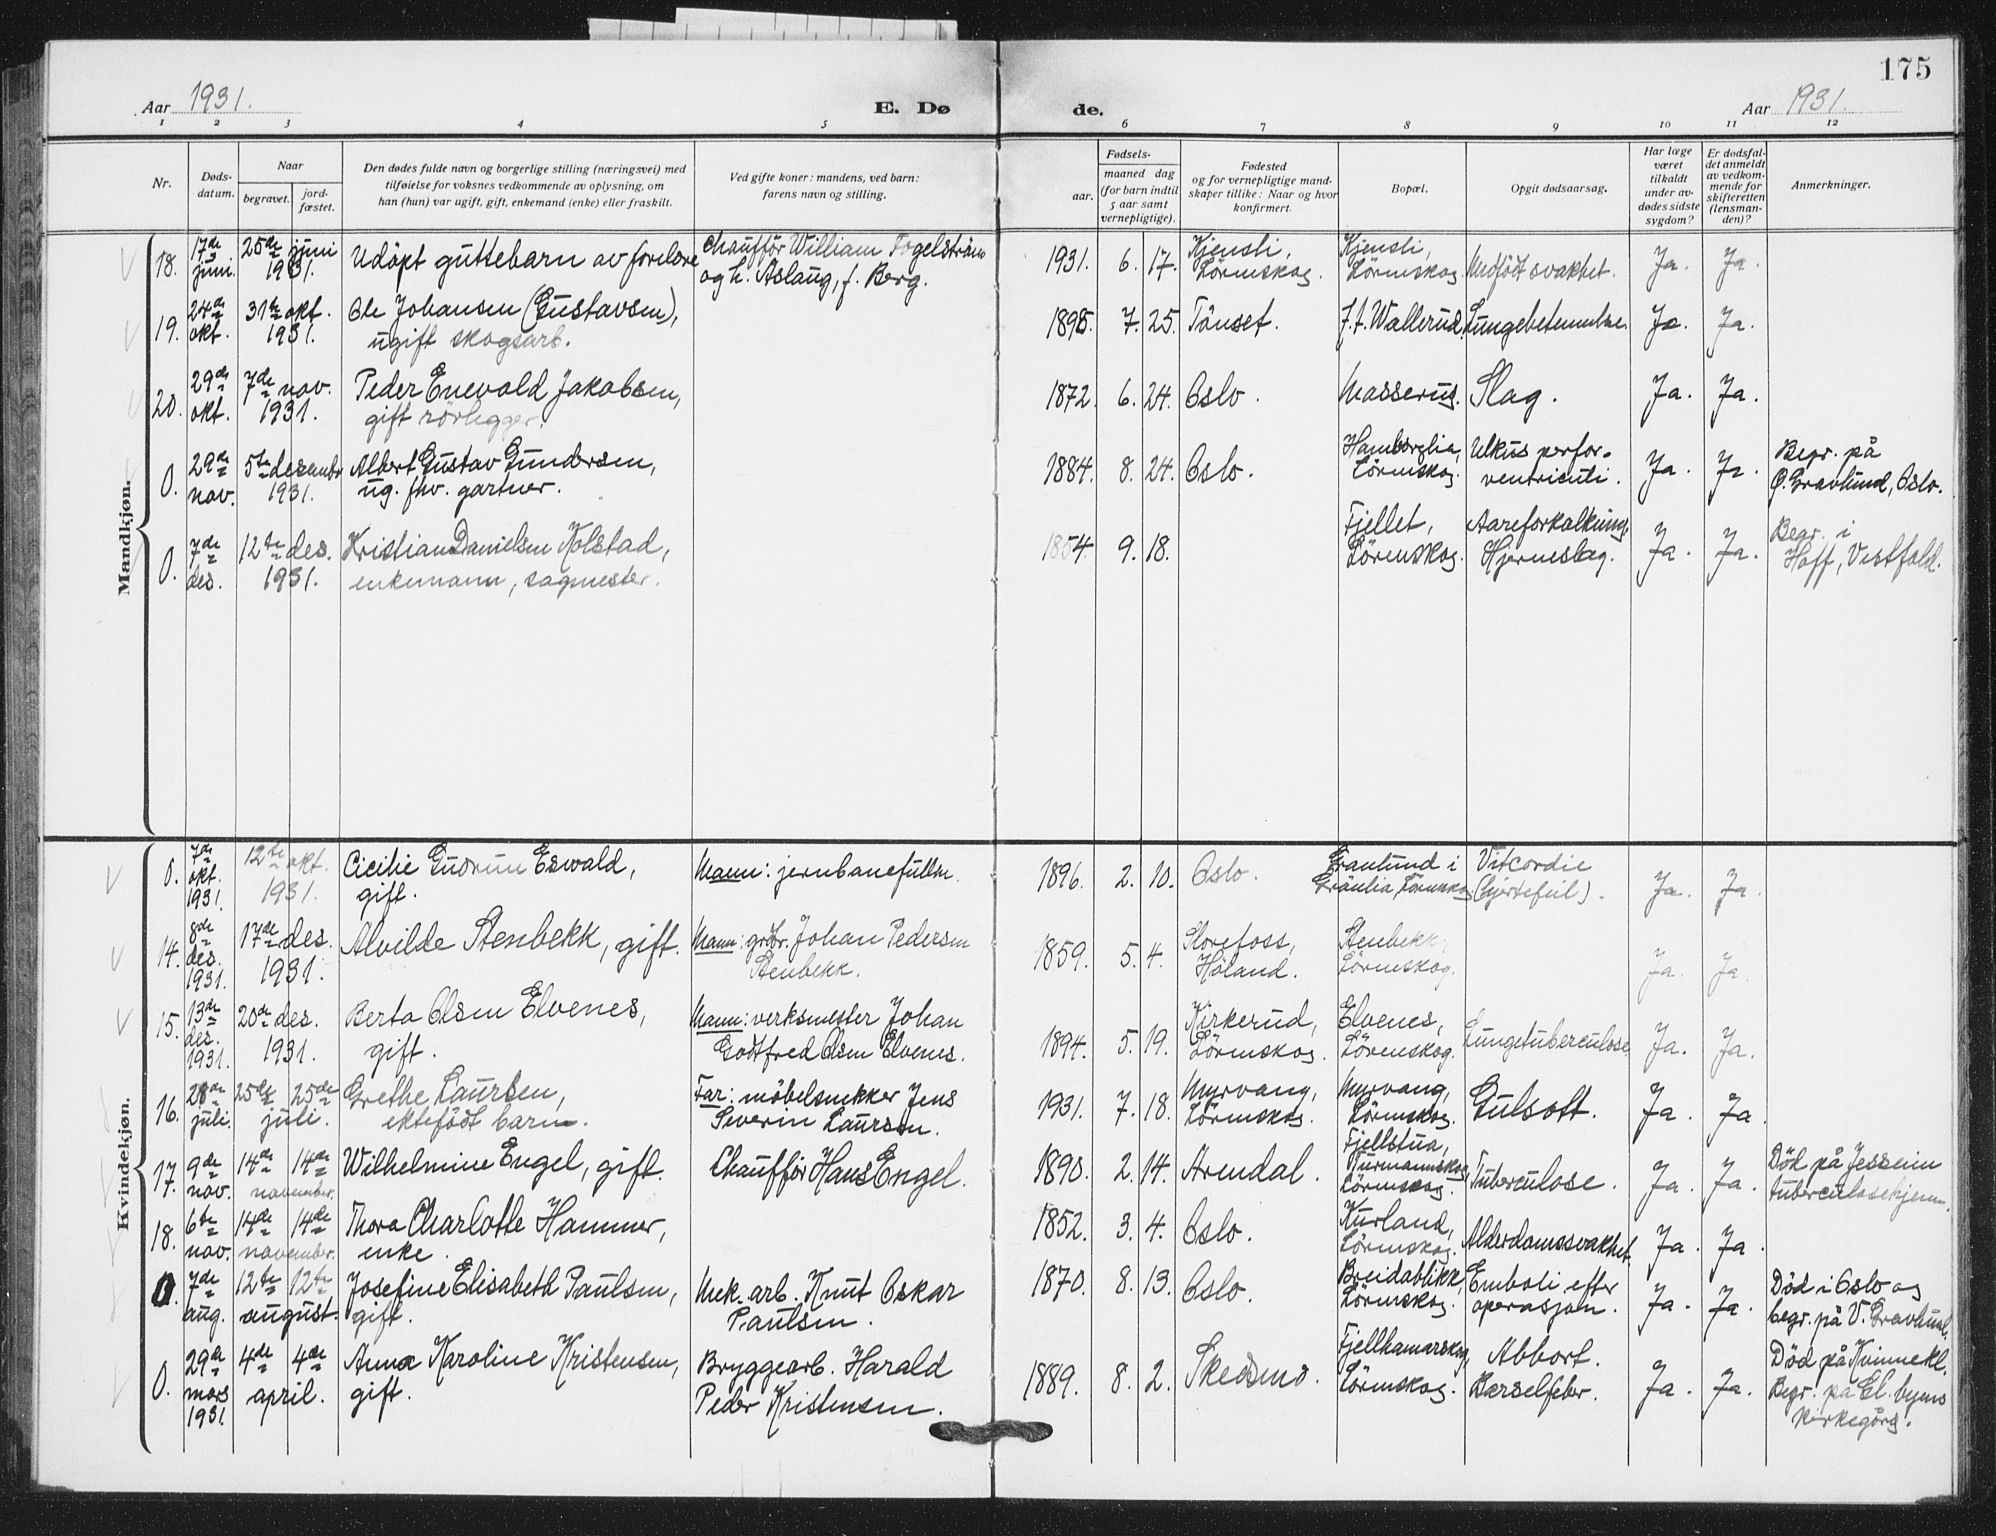 175
Aar 1931.
E. Dø
de.
Aar 1931.
1 2 3 4 5 6 7 8 9 10 11 12
Nr.
Døds-
datum.
Naar
begravet.
jord-
fæstet.
Den dødes fulde navn og borgerlige stilling (næringsvei) med
tilføielse for voksnes vedkommende av oplysning, om
han (hun) var ugift, gift, enkemand (enke) eller fraskilt.
Ved gifte koner: mandens, ved barn:
farens navn og stilling.
Fødsels-
aar.
maaned dag
(for barn indtil
5 aar samt
vernepligtige).
Fødested
og for vernepligtige mand-
skaper tillike: Naar og hvor
konfirmert.
Bopæl.
Opgit dødsaarsag.
Har læge
været
tilkaldt
under av-
dødes sidste
sygdom?
Er dødsfal-
det anmeldt
av vedkom-
mende for
skifteretten
(lensman-
den)?
Anmerkninger.
Mandkjøn.
18. 17de juni. 25de juni 1931. Udöpt guttebarn av foreldre Chaufför William Fogelström
og h. Aslaug, f. Berg. 1931. 6. 17. Kjensli, Lörenskog. Kjensli, Lörenskog Medfödt svakhet. Ja. Ja.
19. 24de okt. 31te okt. 1931. Ole Johansen (Gustavsen),
ugift skogsarb. 1898. 7. 25. Tönset. f.t. Wallerud. Lungebetennelse. Ja. Ja.
20. 29de okt. 7de nov. 1931. Peder Enevold Jakobsen,
gift rörlegger. 1872. 6. 24. Oslo. Masserud. Slag. Ja. Ja.
0. 29de nov. 5te desember 1931. Albert Gustav Gundersen,
ug. fhv. gartner. 1884. 8. 24. Oslo. Lörenskog. Ulkus perfor.
ventriculi. Ja. Ja. Begr. på
Ö. Gravlund, Oslo.
0. 7de des. 12te des. 1931. Kristian Danielsen Kolstad,
enkemann, sagmester. 1854. 9. 18. Fjellet, Lörenskog. Aareforkalkning,
Hjerneslag. Ja. Ja. Begr. i
Hoff, Vestfold.
Kvindekjøn.
0. 7de okt. 1931. 12te okt. 1931. Cicilie Gudrun Eswald,
gift. Mann: jernbanefullm. 1896. 2. 10. Oslo. Granlund i
Lörenskog. Vitcordie
(hjertefeil). Ja. Ja.
14. 8de des. 1931. 17de des. 1931. Alvilde Stenbekk, gift. Mann: grdbr. Johan Pedersen
Stenbekk. 1859. 5. 4. Höland. Stenbekk, Lörenskog. Ja. Ja.
15. 13de des. 1931. 20de des. 1931. Berta Olsen Elvenes,
gift. Mann: verksmester Johan
Godtfred Olsen Elvenes. 1894. 5. 19. Kirkerud, Lörenskog. Elvenes, Lörenskog. Lungetuberculose. Ja. Ja.
16. juli. 25de 25de juli. Grethe Laursen,
ektefödt barn. Far: möbelsnekker Jens
Severin Laursen. 1931. 7. 18. Myrvang, Lörenskog. Myrvang, Lörenskog. Gulsott. Ja. Ja
17. 9de nov. 14de 14de november. Wilhelmine Engel, gift. Chaufför Hans Engel. 1890. 2. 14. Arendal. Fjellstua,
Lörenskog. Tuberculose. Ja. Ja. Död på Jesseim
tuberculosehjem.
18. 6te nov. 14de 14de november. Thora Charlotte Hammer,
enke. 1852. 3. 4. Oslo. Kurland, Lörenskog. Alderdomssvakhet. Ja. Ja.
0. 7de aug. 12te 12te august. Josefine Elisabeth Paulsen,
gift. Mek. arb. Knut Oskar
Paulsen. 1870. 8. 13. Oslo. Breidablikk, Lörenskog. Emboli efter
operasjon. Ja. Ja. Död i Oslo og
begr. på V. Gravlund.
0. 29de mars 1931. 4de 4de april. Anna Karoline Kristensen,
gift. Bryggearb. Harald
Peder Kristensen. 1889. 8. 2. Skedsmo. Fjellhamarskog, Lörenskog. Abbort.
Barselfeber. Ja. Ja. Död på Kvinnekl.
Begr. på Gl. byens
kirkegård.